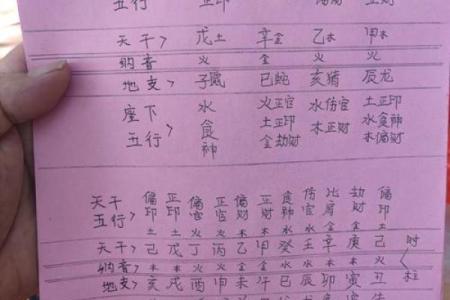 五行 正印 偏官 正财
天干> 戊土 辛金 乙木 甲木
纳音 火 金 火 火
地支> 子鼠 巳蛇 亥猪 辰龙
座下 水 火正官 水伤官 土正印
五行> 食 土正印 木正财 水食神
神 金劫财 木偏财
天干 偏 正 偏 正 偏 正 食 伤 比 劫 偏
五行> 印 印 官 官 财 财 神 官 肩 财 印
土 土 火 火 木 木 水 水 金 金 土
天干> 己 戊 丁 丙 乙 甲 癸 壬 辛 庚 己 时
纳音 木 木 火 火 金 金 水 水 木 木 火
地支> 亥 戌 酉 申 未 午 巳 辰 卯 寅 丑 柱